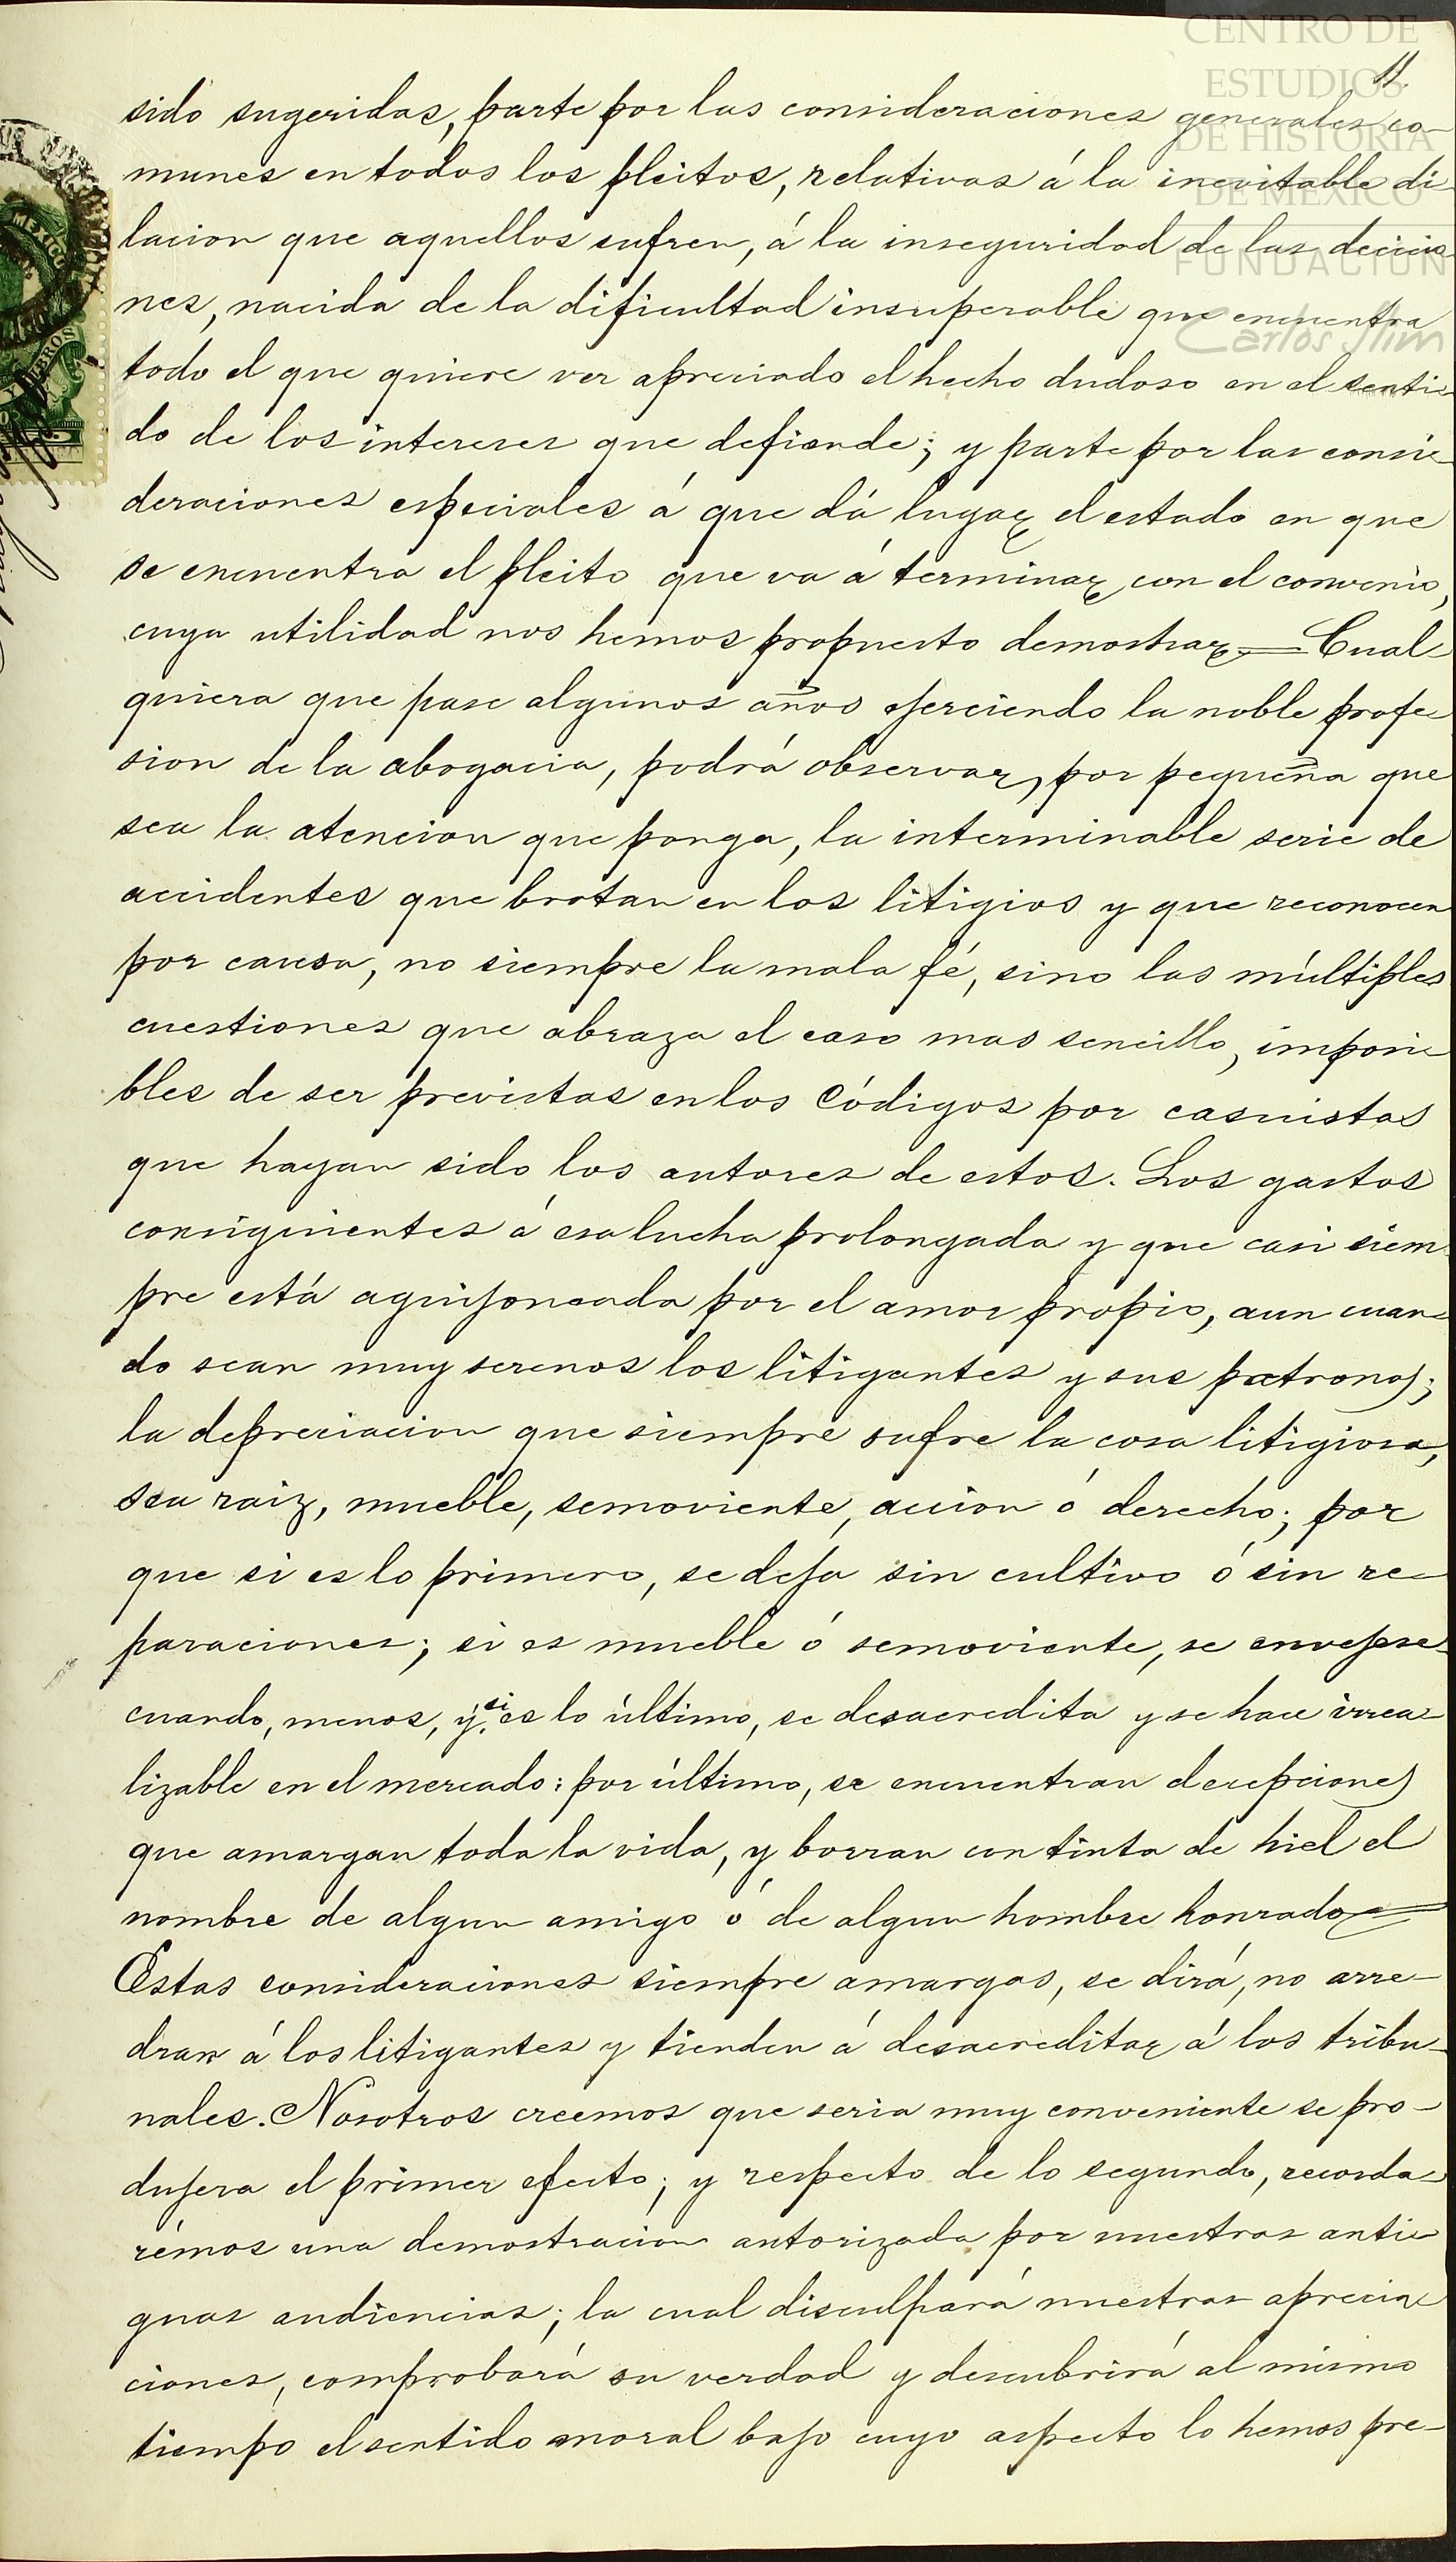 CENTRO DE
ESTUDIOS
DE HISTORIA
DE MEXICO
FUNDACION
Carlos Slim
11.
MEXICO
sido sugeridas, parte por las consideraciones generales co-
munes en todos los pleitos, relativas á la inevitable di-
lacion que aquellos sufren, á la inseguridad de las decicio
nes, nacida de la dificultad insuperable que encuentra
todo el que quiere ver apreciado el hecho dudoso en el senti-
do de los intereses que defiende; y parte por las consi-
deraciones especiales á que dá lugar el estado en que
se encuentra el pleito que va á terminar con el convenio,
cuya utilidad nos hemos propuesto demostrar.= Cual-
quiera que pase algunos años ejerciendo la noble profe-
sion de la abogacia, podrá observar, por pequeña que
sea la atencion que ponga, la interminable serie de
accidentes que brotan en los litigios y que reconocen
por causa, no siempre la mala fé, sino las múltiples
cuestiones que abraza el caso mas sencillo, imposi-
bles de ser previstas en los Códigos por casuistas
que hayan sido los autores de estos. Los gastos
consiguientes á esa lucha prolongada y que casi siem
pre está aguijoneada por el amor propio, aun cuan-
do sean muy serenos los litigantes y sus patronos;
la depreciacion que siempre sufre la cosa litigiosa,
sea raiz, mueble, semoviente, accion ó derecho; por
que si es lo primero, se deja sin cultivo ó sin re-
paraciones; si es mueble ó semoviente, se envejese
cuando, menos, y si es lo último, se desacredita y se hace irrea-
lizable en el mercado: por último, se encuentran decepciones
que amargan toda la vida, y borran con tinta de hiel el
nombre de algun amigo ó de algun hombre honrado=
Estas consideraciones siempre amargas, se dirá, no arre-
dran á los litigantes y tienden á desacreditar á los tribu-
nales. Nosotros creemos que seria muy conveniente se pro-
dujera el primer efecto; y respecto de lo segundo, recorda-
rémos una demostracion autorizada por nuestras anti-
guas audiencias; la cual disculpará nuestras aprecia-
ciones, comprobará su verdad y descubrirá al mismo
tiempo el sentido moral bajo cuyo aspecto lo hemos pre-